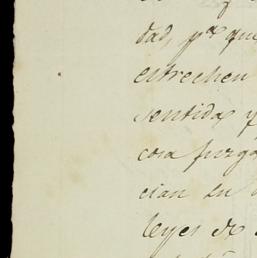 dad, pª que
estrechen
sentida y
cosa juzga
cian su
leyes de